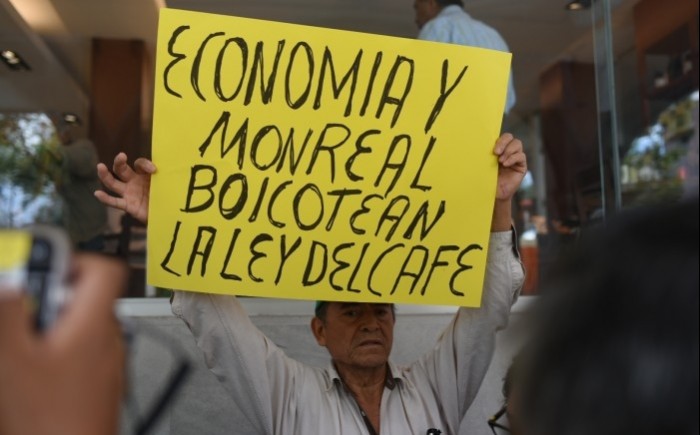 ECONOMIA Y
MONREAL
BOICOTEAN
LA LEY DEL CAFE